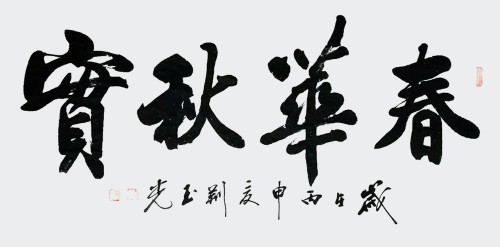 春華秋實
歲在丙申夏荆玉光